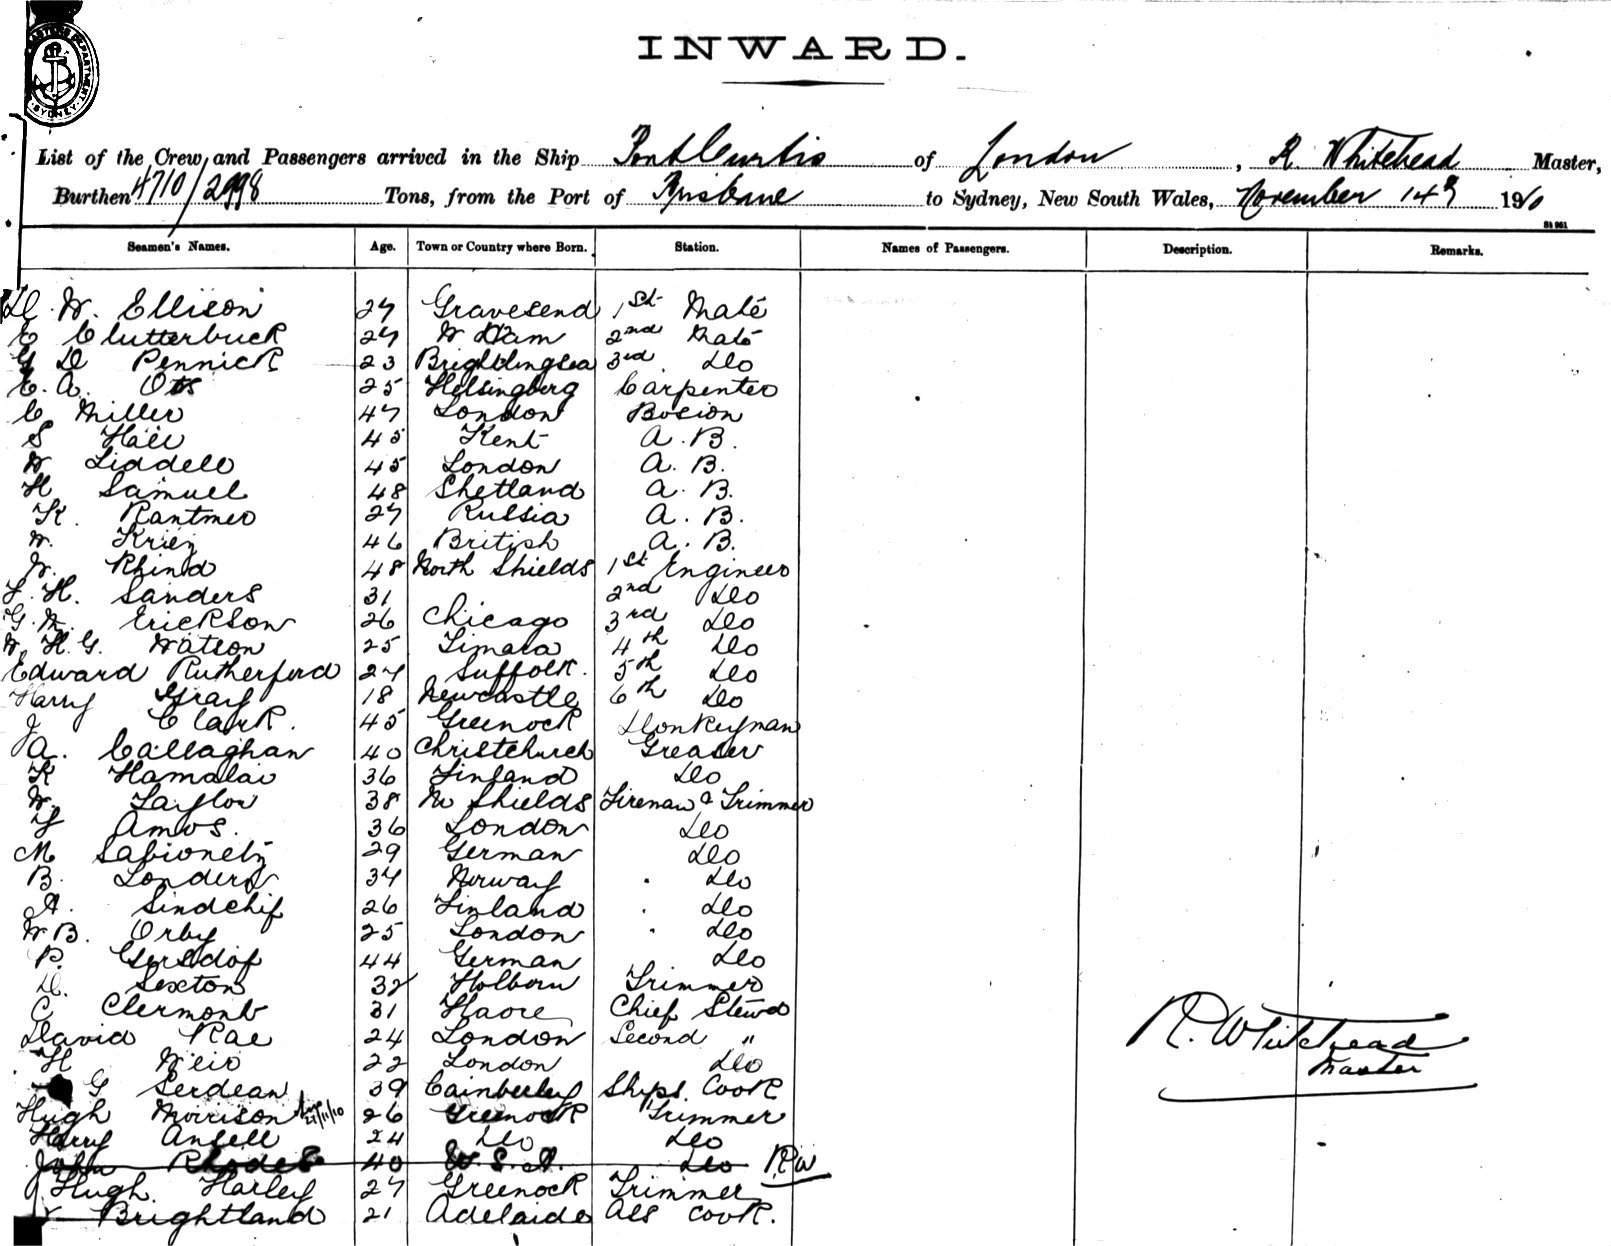 MARITIME DEPARTMENT SYDNEY
INWARD.
List of the Crew and Passengers arrived in the Ship Port Curtis of London, R. Whitehead Master,
Burthen 4710/2998 Tons, from the Port of Brisbane to Sydney, New South Wales, November 14th 1910
St 961
Seamen's Names. Age. Town or Country where Born. Station. Names of Passengers. Description. Remarks.
W. Ellison 27 Gravesend 1st Mate
E Clutterbuck 27 W Ham 2nd Mate
G D Pennick 23 Brightlingsea 3rd Do
E. A. Ots 25 Helsingborg Carpenter
C Miller 47 London Bosion
S Hall 45 Kent A.B.
W Liddell 45 London A.B.
H Samuel 48 Shetland A.B.
K. Rantmer 27 Russia A.B.
W. Krieg 46 British A.B.
W. Rhind 48 North Shields 1st Engineer
F. H. Sanders 31 2nd Do
G. M. Erickson 26 Chicago 3rd Do
W. H. G. Watson 25 Timara 4th Do
Edward Rutherford 27 Suffolk. 5th Do
Harry Gray 18 Newcastle 6th Do
J Clark. 45 Greenock Donkeyman
A. Callaghan 40 Christchurch Greaser
K Hamalai 36 Finland Do
W. Taylor 38 N Shields Fireman & Trimmer
F Amos. 36 London Do
M 29 German Do
B. Londery 34 Norway Do
A. Sindchif 26 Finland Do
W B. Orby 25 London Do
P. Gersdof 44 German Do
D. Sexton 32 Holborn Trimmer
C Clermont 31 Havre Chief Stewd
David Rae 24 London Second "
H Weir 22 London Do
G Serdean 39 Camberley Ships Cook
Hugh Morrison 21/11/10 26 Greenock Trimmer
Harry Ansell 24 Do Do
John Rhodes 40 U.S.A. Do RW
Hugh Harley 27 Greenock Trimmer
Brightland 21 Adelaide Ass Cook.
R. Whitehead
Master